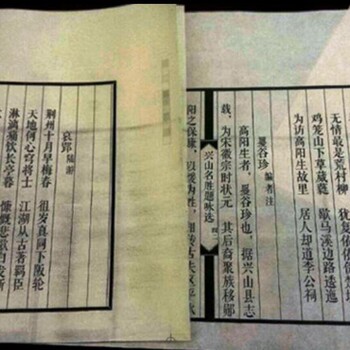 无情最是荒村柳　犹复依依
鸡笼山下草萋萋　歇马溪边路逶迤
为访高阳生故里　居人却道李公祠
晏谷珍　编者注
高阳生者，晏谷珍也。据兴山县志
载，为宋徽宗时状元。其后裔聚族移鄖
阳之保康，
兴山名胜题咏选
哀郢　陆游
荆州十月早梅春　徂岁真同下阪轮
天地何心穷壮士　江湖从古著羁臣
淋漓痛饮长亭暮　慷慨悲歌白发新